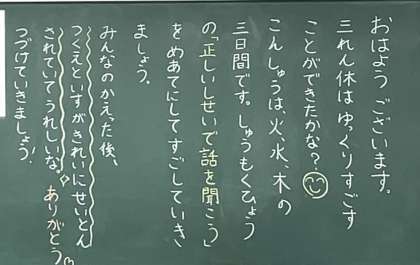 おはよう ございます。
三れん休は ゆっくりすごす
ことができたかな？
こんしゅうは、火、水、木の
三日間です。しゅうもくひょう
の「正しいしせいで話を聞こう」
を めあてにしてすごしていき
ましょう。
みんなのかえった後、
つくえといすがきれいにせいとん
されていてうれしいな。ありがとう
つづけていきましょう！